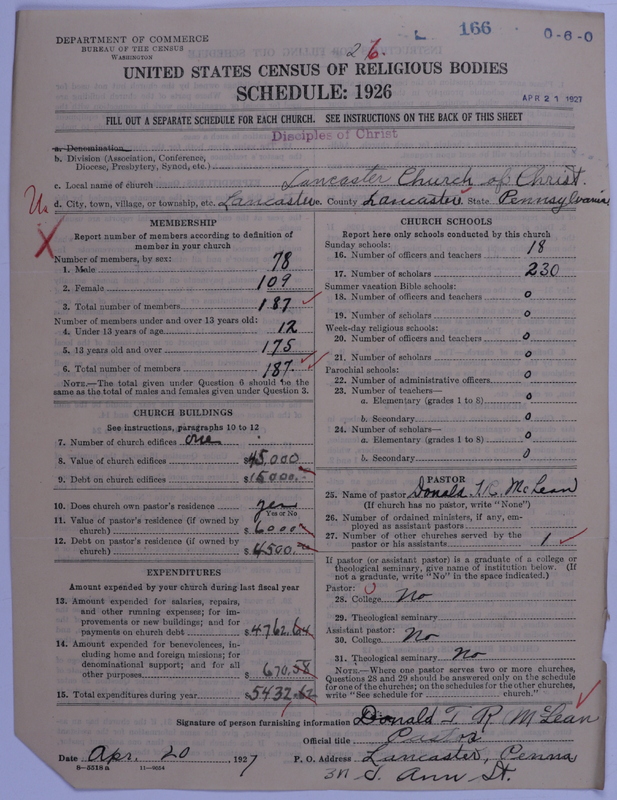 DEPARTMENT OF COMMERCE
BUREAU OF THE CENSUS
WASHINGTON
26.
166
0-6-0
UNITED STATES CENSUS OF RELIGIOUS BODIES
SCHEDULE: 1926
APR 21 1927
FILL OUT A SEPARATE SCHEDULE FOR EACH CHURCH. SEE INSTRUCTIONS ON THE BACK OF THIS SHEET
Disciples of Christ
a. Denomination
b. Division (Association, Conference,
Diocese, Presbytery, Synod, etc.)
c. Local name of church Lancaster Church of Christ.
d. City, town, village, or township, etc. Lancaster e. County Lancaster State Pennsylvania
MEMBERSHIP
Report number of members according to definition of
member in your church
Number of members, by sex:
1. Male 78
2. Female 109
3. Total number of members 187
Number of members under and over 13 years old:
4. Under 13 years of age 12
5. 13 years old and over 175
6. Total number of members 187.
NOTE.—The total given under Question 6 should be the
same as the total of males and females given under Question 3.
CHURCH BUILDINGS
See instructions, paragraphs 10 to 12
7. Number of church edifices one
8. Value of church edifices $45,000
9. Debt on church edifices $15000.-
10. Does church own pastor's residence yes
Yes or No
11. Value of pastor's residence (if owned by
church) $6000
12. Debt on pastor's residence (if owned by
church) $4500.
EXPENDITURES
Amount expended by your church during last fiscal year
13. Amount expended for salaries, repairs,
and other running expenses; for im-
provements or new buildings; and for
payments on church debt $4762.64
14. Amount expended for benevolences, in-
cluding home and foreign missions; for
denominational support; and for all
other purposes $670.58
15. Total expenditures during year $5432.62
CHURCH SCHOOLS
Report here only schools conducted by this church
Sunday schools:
16. Number of officers and teachers 18
17. Number of scholars 230
Summer vacation Bible schools:
18. Number of officers and teachers 0
19. Number of scholars 0
Week-day religious schools:
20. Number of officers and teachers 0
21. Number of scholars 0
Parochial schools:
22. Number of administrative officers 0
23. Number of teachers—
a. Elementary (grades 1 to 8) 0
b. Secondary 0
24. Number of scholars—
a. Elementary (grades 1 to 8) 0
b. Secondary 0
PASTOR
25. Name of pastor Donald T.R. McLean
(If church has no pastor, write "None")
26. Number of ordained ministers, if any, em-
ployed as assistant pastors
27. Number of other churches served by the
pastor or his assistants 1
If pastor (or assistant pastor) is a graduate of a college or
theological seminary, give name of institution below. (If
not a graduate, write "No" in the space indicated.)
Pastor:
28. College No
29. Theological seminary
Assistant pastor:
30. College No
31. Theological seminary No
NOTE.—Where one pastor serves two or more churches,
Questions 28 and 29 should be answered only on the schedule
for one of the churches; on the schedules for the other churches,
write "See schedule for church."
Signature of person furnishing information Donald T R McLean
Official title Pastor
Date Apr. 20, 1927 P. O. Address Lancaster, Penna
8-5518a 11-9554
311 S. Ann St.